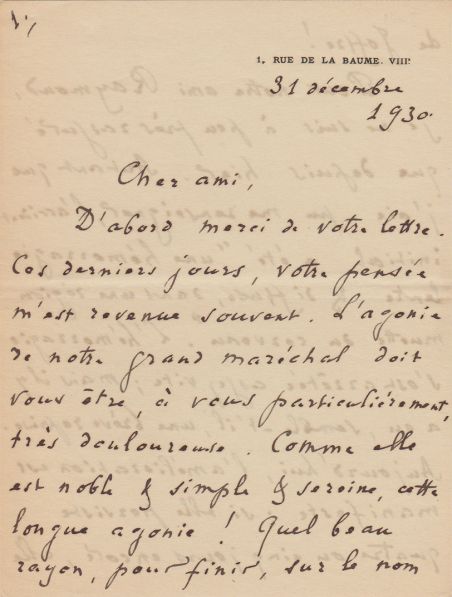 1, RUE DE LA BAUME. VIIIe
31 décembre
1930.
Cher ami,
D'abord merci de votre lettre.
Ces derniers jours, votre pensée
m'est revenue souvent. L'agonie
de notre grand maréchal doit
vous être, à vous particulièrement,
très douloureuse. Comme elle
est noble & simple & sereine, cette
longue agonie ! Quel beau
rayon, pour finir, sur le nom